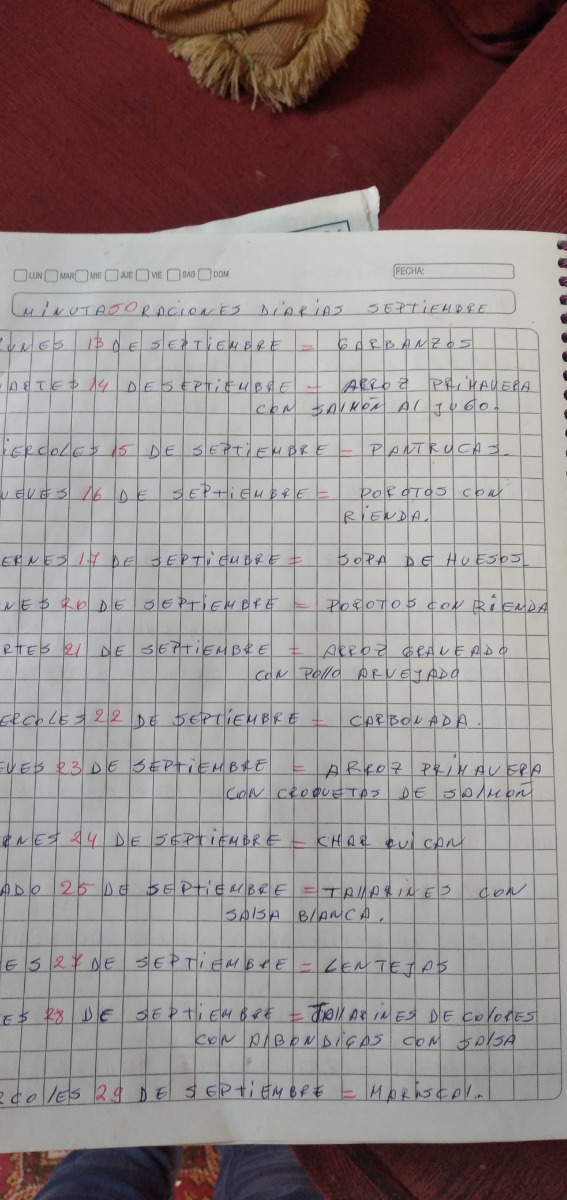 LUN MAR MIE JUE VIE SAB DOM FECHA:
MINUTAS 50 RACIONES DIARIAS SEPTIEMBRE
UNES 13 DE SEPTIEMBRE = GARBANZOS
ARTES 14 DE SEPTIEMBRE = ARROZ PRIMAVERA
CON SALMÓN Al JUGO.
IERCOLES 15 DE SEPTIEMBRE = PANTRUCAS.
UEVES 16 DE SEPTIEMBRE = POROTOS CON
RIENDA.
ERNES 17 DE SEPTIEMBRE = SOPA DE HUESOS
NES 20 DE SEPTIEMBRE = POROTOS CON RIENDA
RTES 21 DE SEPTIEMBRE = ARROZ GRANEADO
CON POllO ARVEJADO
ERCOLES 22 DE SEPTIEMBRE = CARBONADA.
EVES 23 DE SEPTIEMBRE = ARROZ PRIMAVERA
CON CROQUETAS DE SALMON
RNES 24 DE SEPTIEMBRE = CHARQUICAN
ADO 25 DE SEPTIEMBRE = TAllARINES CON
SAlSA BlANCA.
ES 27 DE SEPTIEMBRE = LENTEJAS
ES 28 DE SEPTIEMBRE = TAllARINES DE COlORES
CON AlBONDIGAS CON SAlSA
RCOlES 29 DE SEPTIEMBRE = MARISCAl.